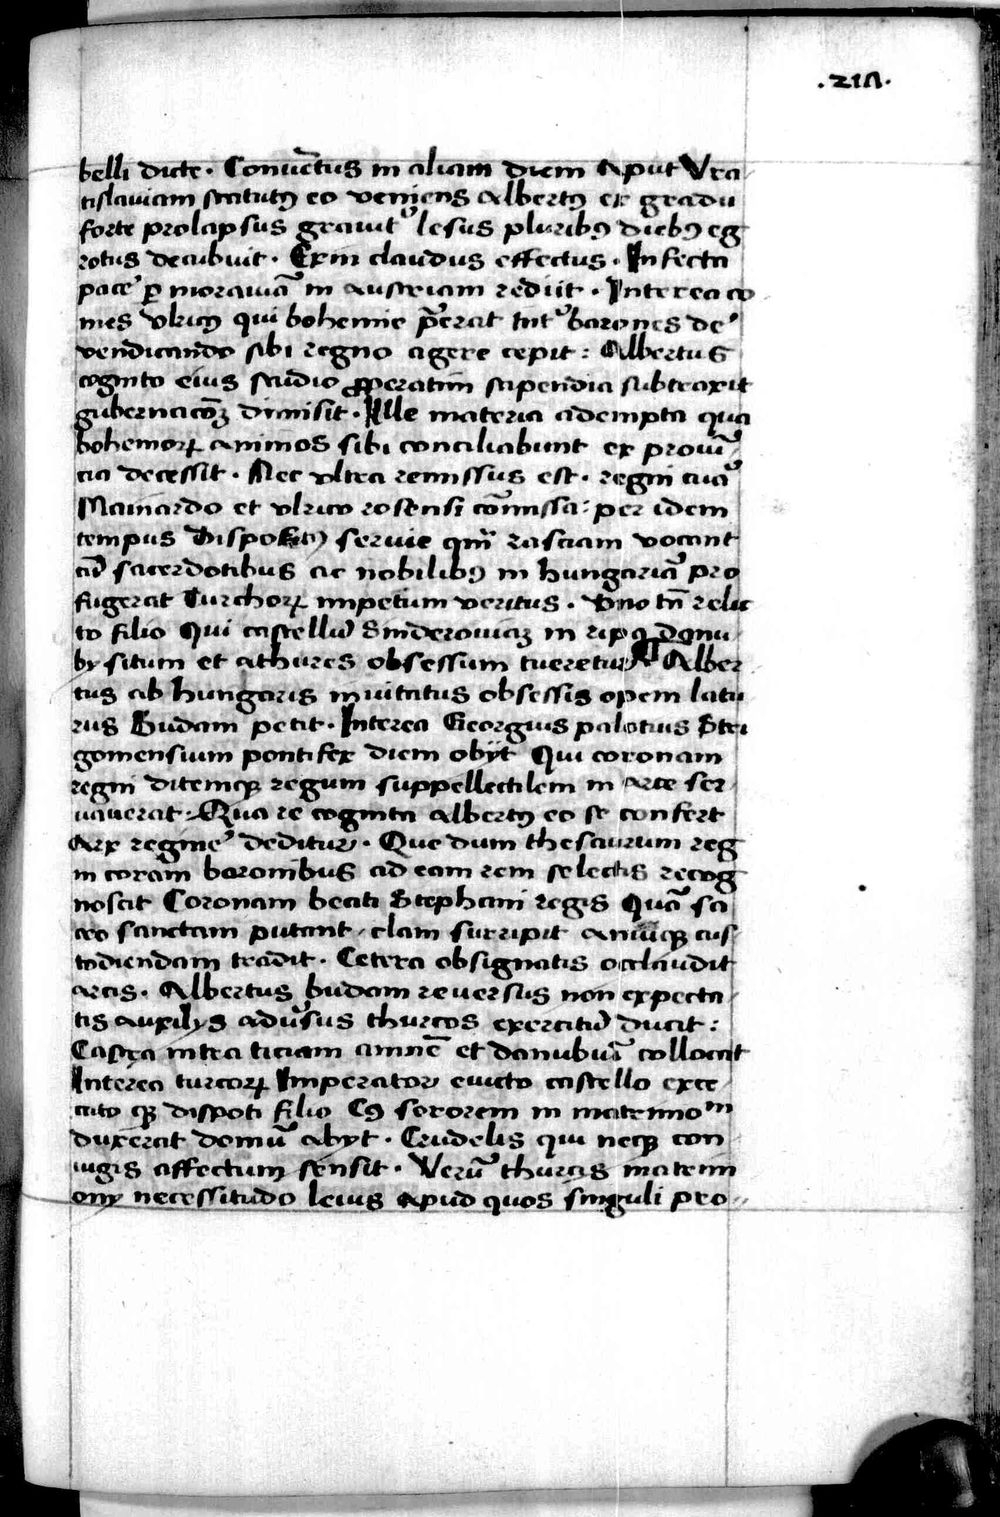 .217.
belli dicte. Conuētus in aliam diem Aput Vra
tislauiam statutꝰ eo veniens Albertꝰ ex gradu
forte prolapsus grauit᷑ lesus pluribꝰ diebꝰ eg
rotus decubuit. Exin claudus effectus. Infecta
pace ꝑ morauiā in Austriam rediit. Interea co
mes vlricꝰ qui bohemie p̄erat int᷑ barones de
vendicando sibi regno agere cepit: Albertus
cognito eius studio ꝓperatim stipendia subtraxit
gubernacōꝫ dimisit. Ille materia adempta qua
bohemoꝝ animos sibi conciliabunt ex prouī
cia decessit. Nec vltra remissus est. regni cura
Mainardo et vlrico rosensi cōmissa: per idem
tempus Dispotꝰ seruie qm̄ rasciam vocant
cū sacerdotibus ac nobilibꝰ in hungariā pro
fugerat Turchoꝝ impetum veritus. Vno tn̄ relic
to filio Qui castellū Sinderouiaꝫ in ripa danu
by situm et athures obsessum tueretur Alber
tus ab hungaris inuitatus obsessis opem latu
rus Budam petit. Interea Georgius palotius Stri
gomensium pontifex diem obyt Qui coronam
regni ditemqꝫ regum suppellectilem in arce ser
uauerat: Qua re cognita Albertꝰ eo se confert
Arx regine deditur. Que dum thesaurum reg
ni coram baronibus ad eam rem selectis recog
noscit Coronam beati Stephani regis Quā sa
cro sanctam putant clam surripit Aniūcqꝫ cus
todiendam tradit. Cetera obsignatis occlaudit
arcis. Albertus budam reuersus non expecta
tis auxilys adūsus thurcos exercitū ducit:
Castra intra ticiam amnē et danubiū collocat
Interea turcoꝝ Imperator euicto castello exce
cato qꝫ dispoti filio Cꝰ sororem in matrimoᵐ
duxerat domū abyt. Crudelis qui neqꝫ con
iugis affectum sensit. Verū thurcis matrim
ony necessitudo leuis apud quos singuli pro